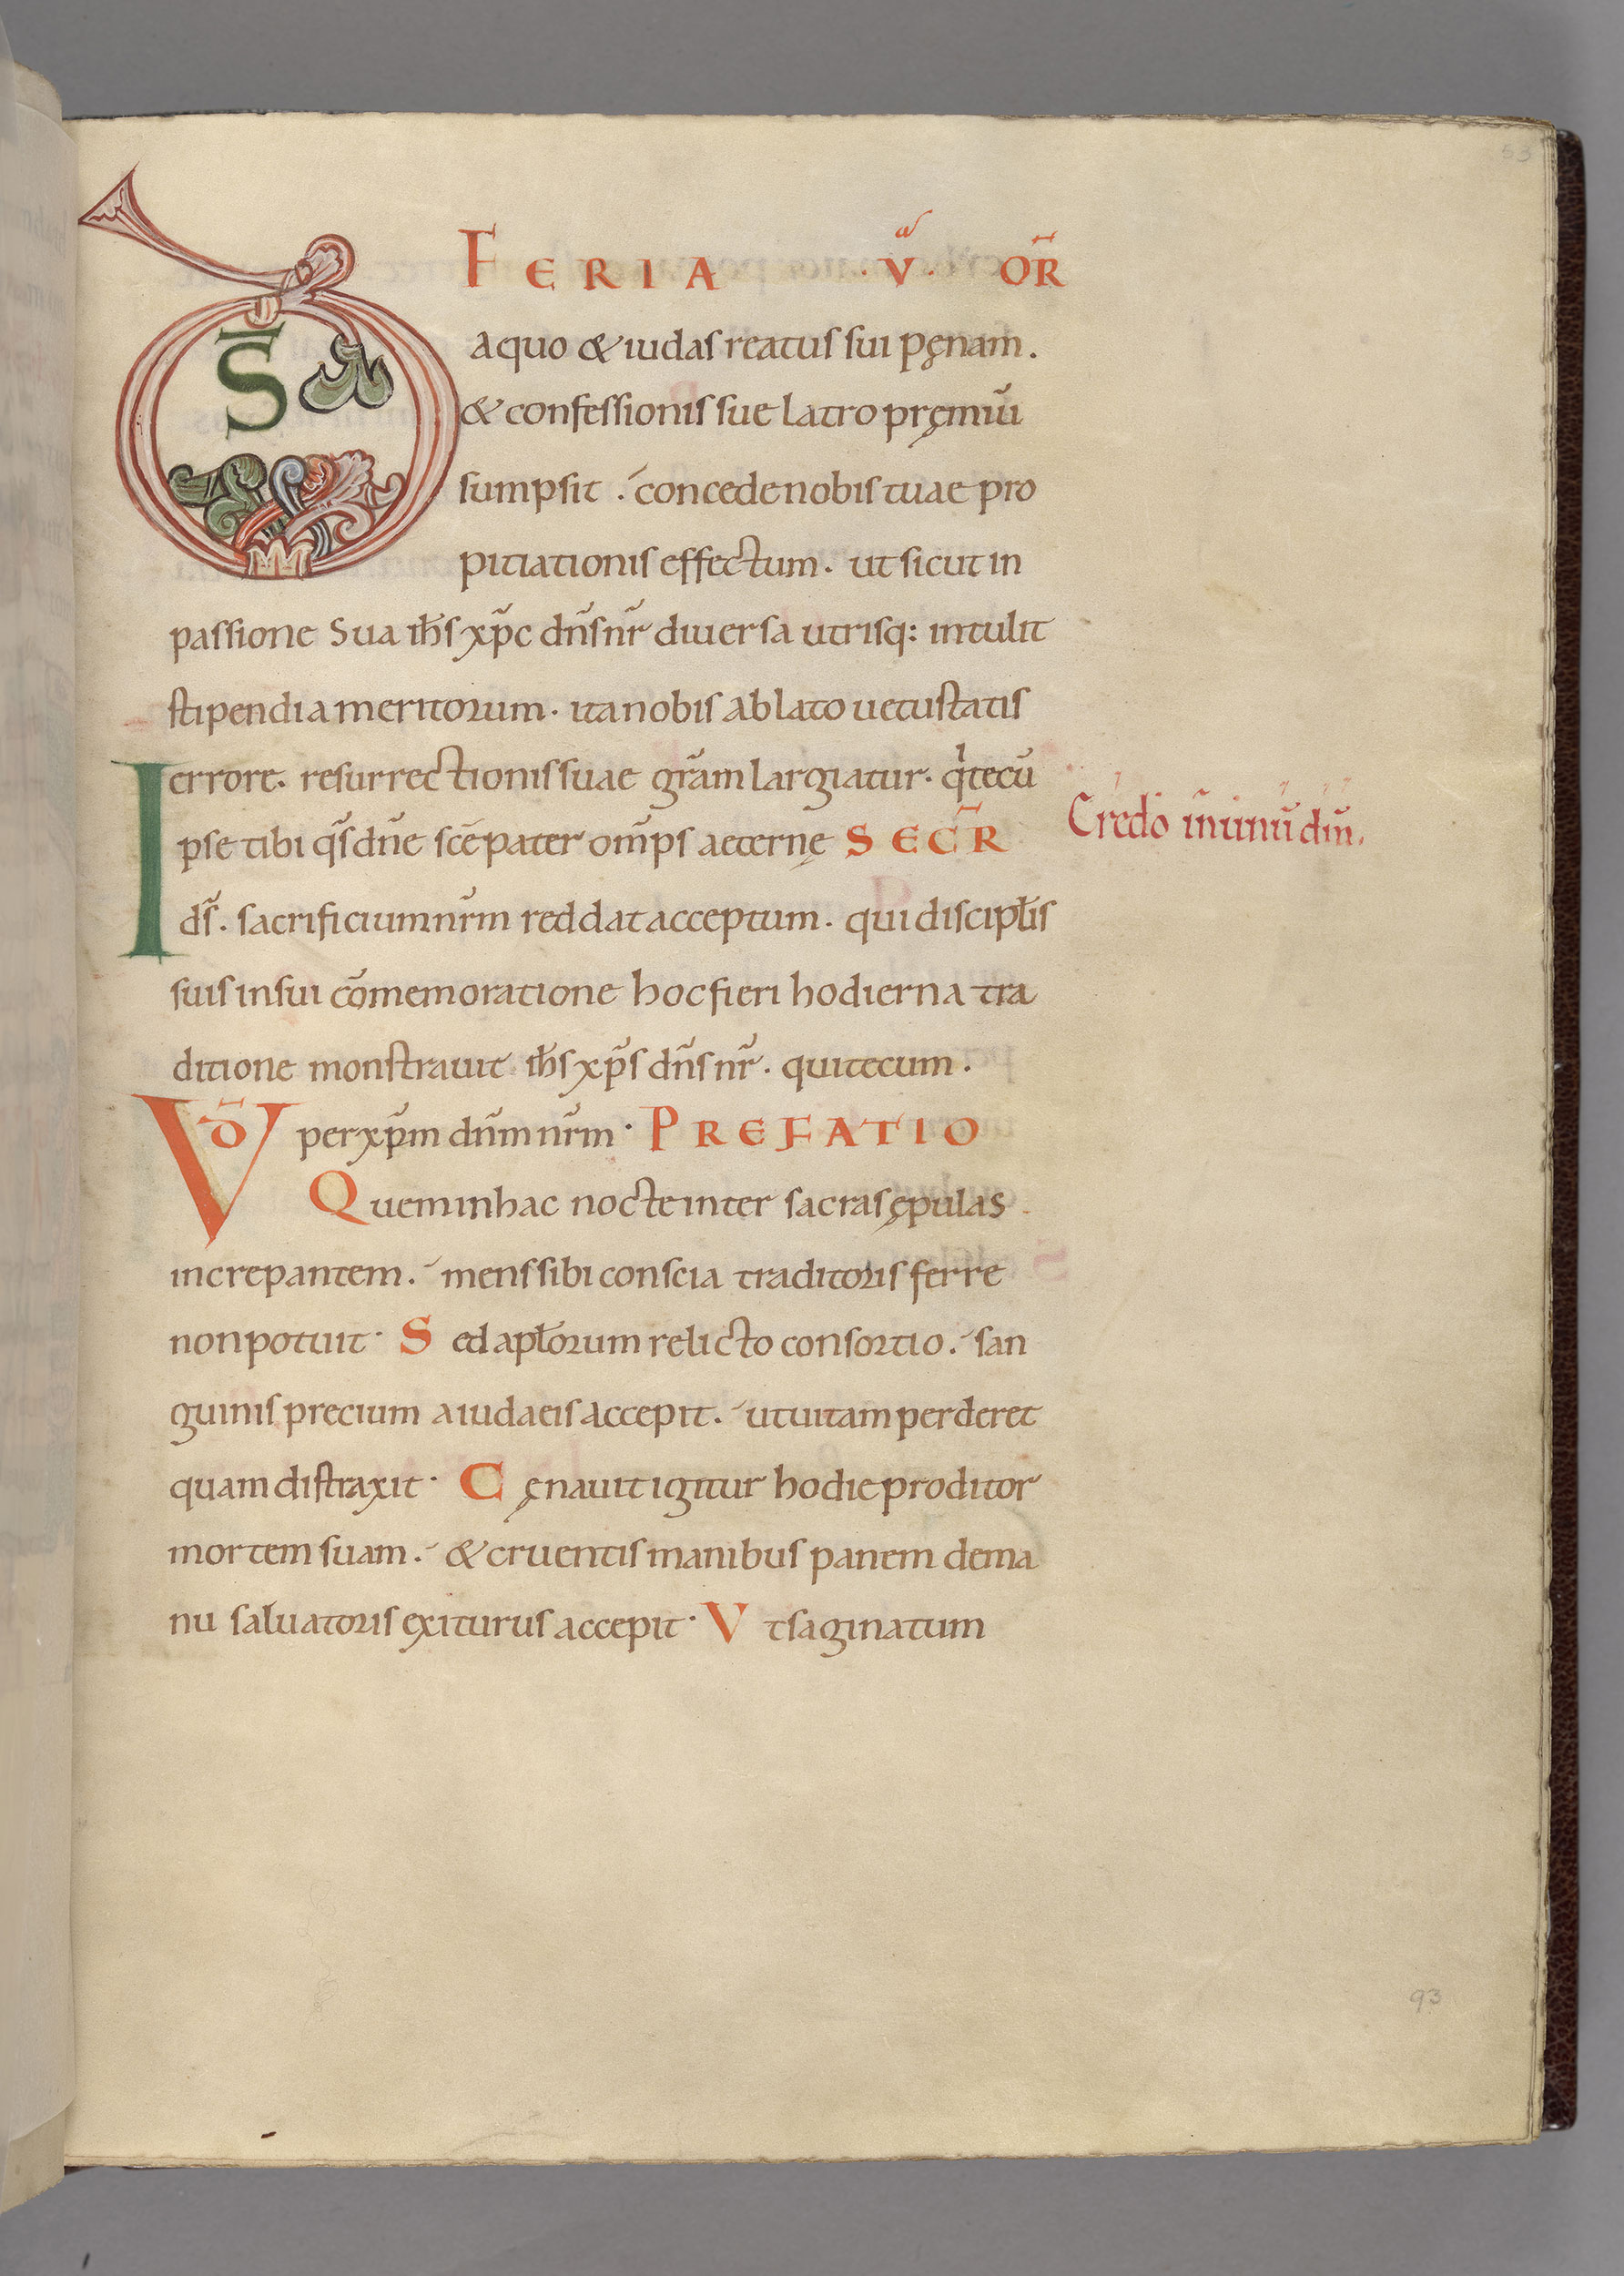 53
FERIA .v.ᵃ OR̄
D̄S aquo & iudas reatus sui pęnam.
& confessionis sue latro pręmiū
sumpsit. concede nobis tuae pro
pitiationis effectum. ut sicut in
passione Sua ih̄s xp̄c dn̄s nr̄ diuersa utrisq: intulit
stipendia meritorum. ita nobis ablato uetustatis
errore. resurrectionis suae gr̄am largiatur. q̍ tecū
Ipse tibi qs̄ dn̄e sc̄e pater om̄ps aeternę SECR̄
ds̄. sacrificium nr̄m reddat acceptum. qui discipl̄is
suis in sui cōmemoratione hoc fieri hodierna tra
ditione monstrauit ih̄s xp̄s dn̄s nr̄. qui tecum.
VD̄ per xp̄m dn̄m nr̄m. PREFATIO
Quem in hac nocte inter sacras ępulas
increpantem. mens sibi conscia traditoris ferre
non potuit. Sed apl̄orum relicto consortio. san
guinis precium a iudaeis accepit. ut uitam perderet
quam distraxit. Cęnauit igitur hodie proditor
mortem suam. & cruentis manibus panem de ma
nu saluatoris exiturus accepit. Vt saginatum
Credo in unū dm̄.
93